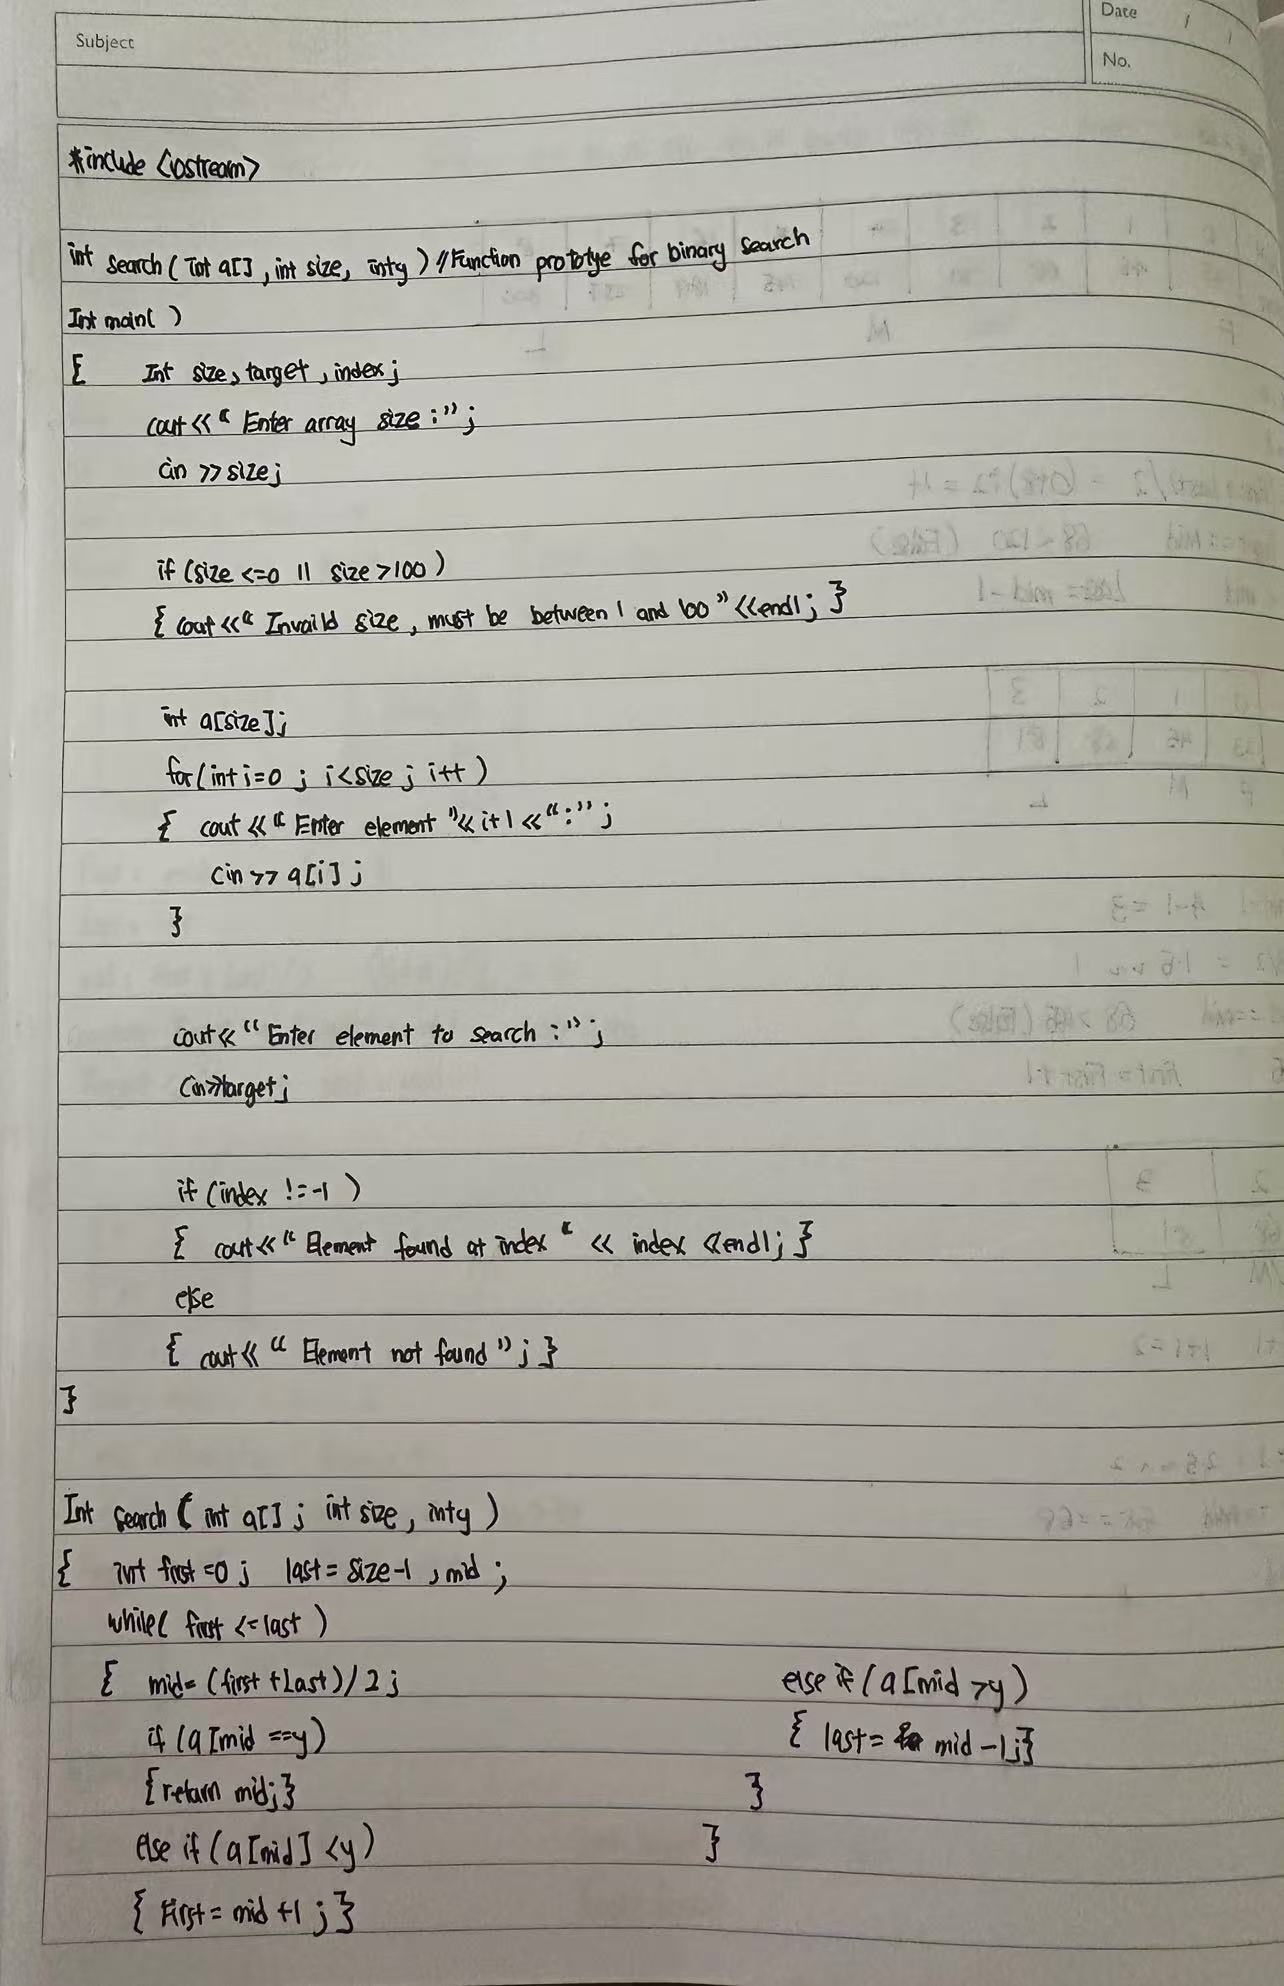 Subject
Date / /
No.
#include <iostream>
int search ( int a[] , int size, int y ) //Function prototye for binary search
Int main( )
{ Int size, target , index ;
cout << “ Enter array size : ” ;
cin >> size ;
if (size <=0 || size >100 )
{ cout << “ Invaild size , must be between 1 and 100 ” << endl ; }
int a[size] ;
for ( int i=0 ; i<size ; i++ )
{ cout << “ Enter element ” << i+1 << “ : ” ;
cin >> a[i] ;
}
cout << “ Enter element to search : ” ;
cin >> target ;
if (index != -1 )
{ cout << “ Element found at index “ << index << endl ; }
else
{ cout << “ Element not found ” ; }
}
Int search ( int a[] ; int size , int y )
{ int first =0 ; last = size-1 , mid ;
while( first <= last )
{ mid = (first + Last) / 2 ;
if (a[mid ==y)
{return mid;}
else if (a[mid] <y)
{ First = mid +1 ; }
else if ( a[mid >y )
{ last = mid -1 ; }
}
}